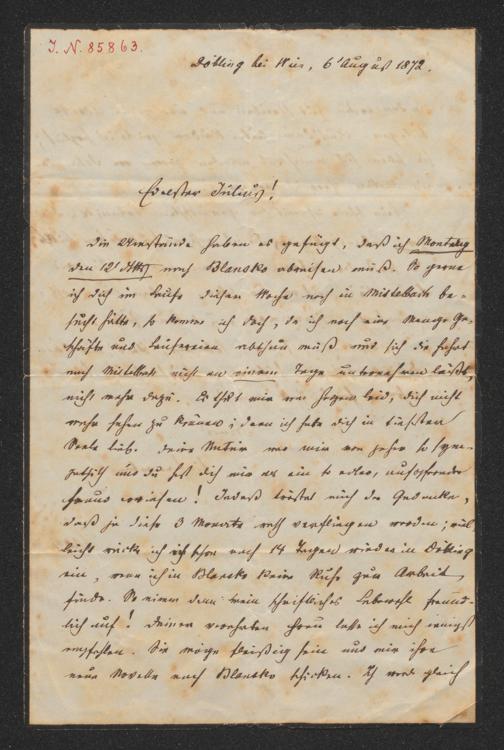 I. N. 85863.
Döbling bei Wien, 6t August 1872.
Edelster Julius!
Die Umstände haben es gefügt, daß ich Montag
den 12t nach Blansko abreisen muß. So gerne
ich dich im Laufe dieser Woche noch in Mistelbach be-
sucht hätte, so komme ich doch, da ich noch eine Menge Ge-
schäfte und Laufereien abthun muß und sich die Fahrt
nach Mistelbach nicht an einem Tage unternehmen läßt,
nicht mehr dazu. Es thut mir von Herzen leid, dich nicht
mehr sehen zu können; denn ich habe dich in tiefster
Seele lieb. Deine Natur war mir von jeher so sym-
pathisch und du hast dich mir als ein so edler, aufopfernder
Freund erwiesen! Indeß tröstet mich der Gedanke,
daß ja diese 3 Monate rasch verfliegen werden; viel
leicht rücke ich schon nach 14 Tagen wieder in Döbling
ein, wenn ich in Blansko keine Ruhe zur Arbeit
finde. So nimm denn mein schriftliches Lebewohl freund-
lich auf! Deiner verehrten Frau lasse ich mich innigst
empfehlen. Sie möge fleißig sein und mir ihre
neue Novelle nach Blansko schicken. Ich werde gleich